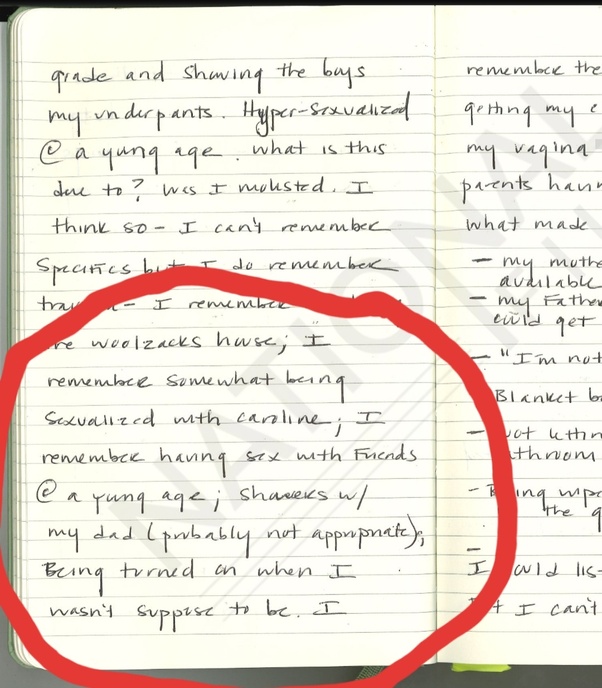 grade and showing the boys
my underpants. Hyper-sexualized
@ a yung age. what is this
due to? Was I molested. I
think so - I can't remember
specifics but I do remember
trauma - I remember
woolzacks house; I
remember somewhat being
sexualized with caroline; I
remember having sex with Friends
@ a yung age; showers w/
my dad (probably not appropriate);
Being turned on when I
wasn't suppose to be. I
remember the
getting my
my vagina
parents
what made
- my
available
- my Father
could get
- "I'm not
Blanket
-
-
the
-
I
I can't
NATIONAL